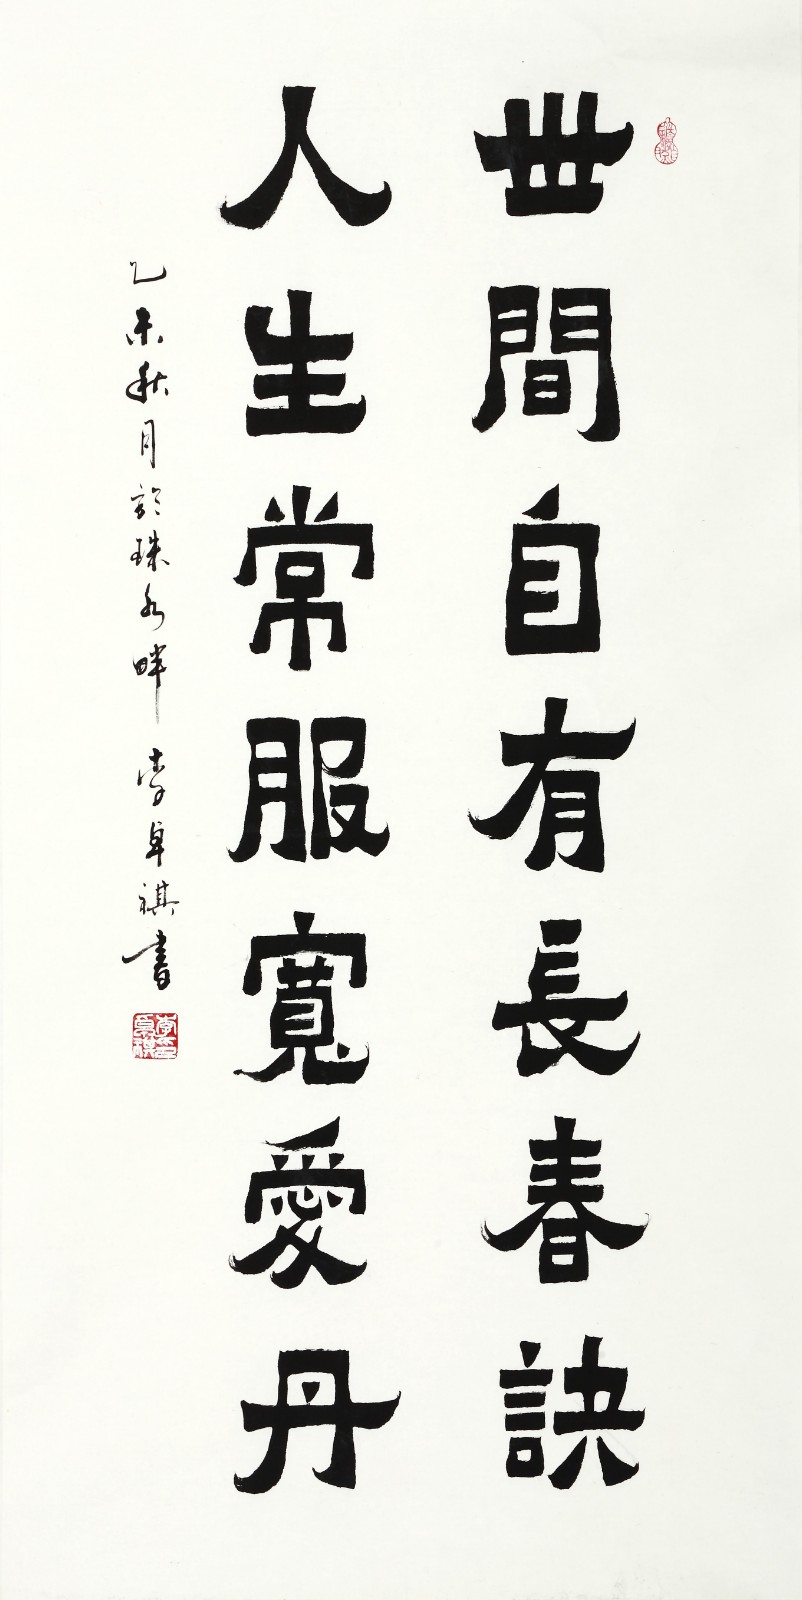 世間自有長春訣
人生常服寬愛丹
乙未秋月於珠水畔 李卓祺書